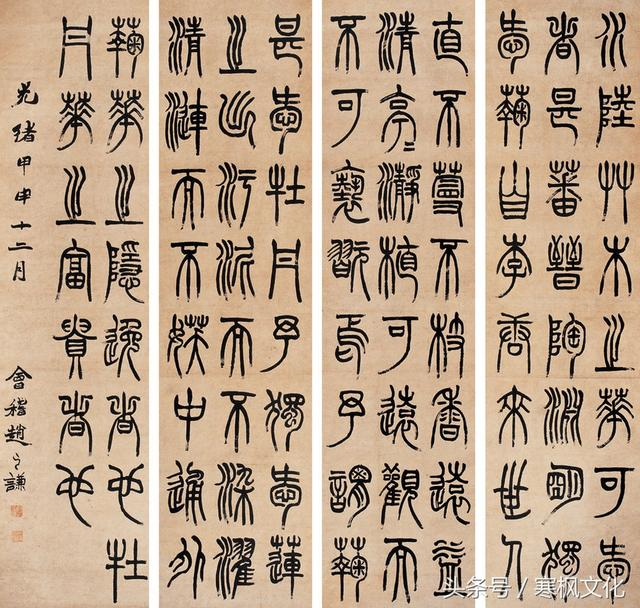 水陸艸木之華可愛
者甚蕃晉陶淵明獨
愛蘜自李唐來世人
直不蔓不枝香遠益
清亭〻瀞植可遠觀而
不可褻翫焉予謂蘜
甚愛牡丹予獨愛蓮
之出污泥而不染濯
清漣而不妖中通外
蘜華之隱逸者也牡
丹華之富貴者也
光緒甲申十二月 會稽趙之謙
头条号 / 寒枫文化